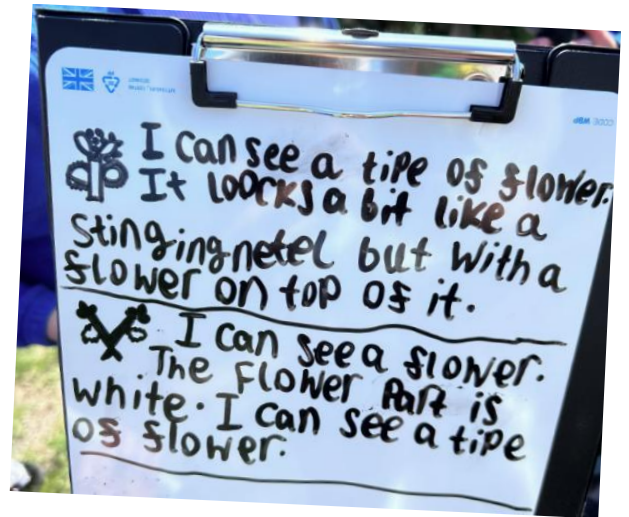 I can see a tipe of flower.
It loocks a bit like a
Stinging netel but with a
flower on top of it.
I can see a flower.
The Flower Part is
white. I can see a tipe
of flower.
CODE WBP